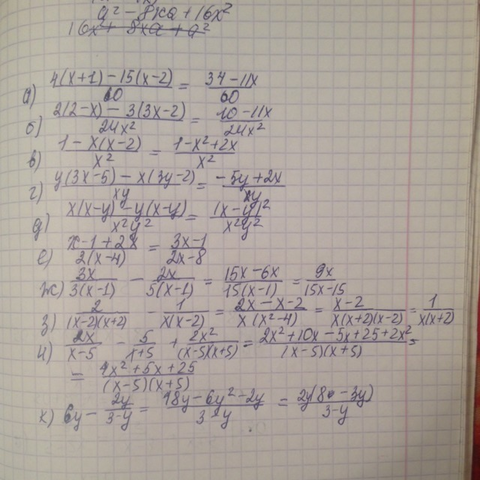 a² - 8xa + 16x²
16x² + 8xa + a²
а) (4(x+1) - 15(x-2))/60 = (34-11x)/60
б) (2(2-x) - 3(3x-2))/24x² = (10-11x)/24x²
в) (1-x(x-2))/x² = (1-x²+2x)/x²
г) (y(3x-5) - x(3y-2))/xy = (-5y+2x)/xy
д) (x(x-y) - y(x-y))/x²y² = (x-y)²/x²y²
е) (x-1+2x)/2(x-4) = (3x-1)/(2x-8)
ж) 3x/3(x-1) - 2x/5(x-1) = (15x-6x)/15(x-1) = 9x/(15x-15)
з) 2/(x-2)(x+2) - 1/x(x-2) = (2x-x-2)/x(x²-4) = (x-2)/x(x+2)(x-2) = 1/x(x+2)
и) 2x/(x-5) - 5/(x+5) + 2x²/(x-5)(x+5) = (2x²+10x-5x+25+2x²)/(x-5)(x+5) =
= (4x²+5x+25)/(x-5)(x+5)
к) 6y - 2y/(3-y) = (18y-6y²-2y)/(3-y) = 2y(8-3y)/(3-y)